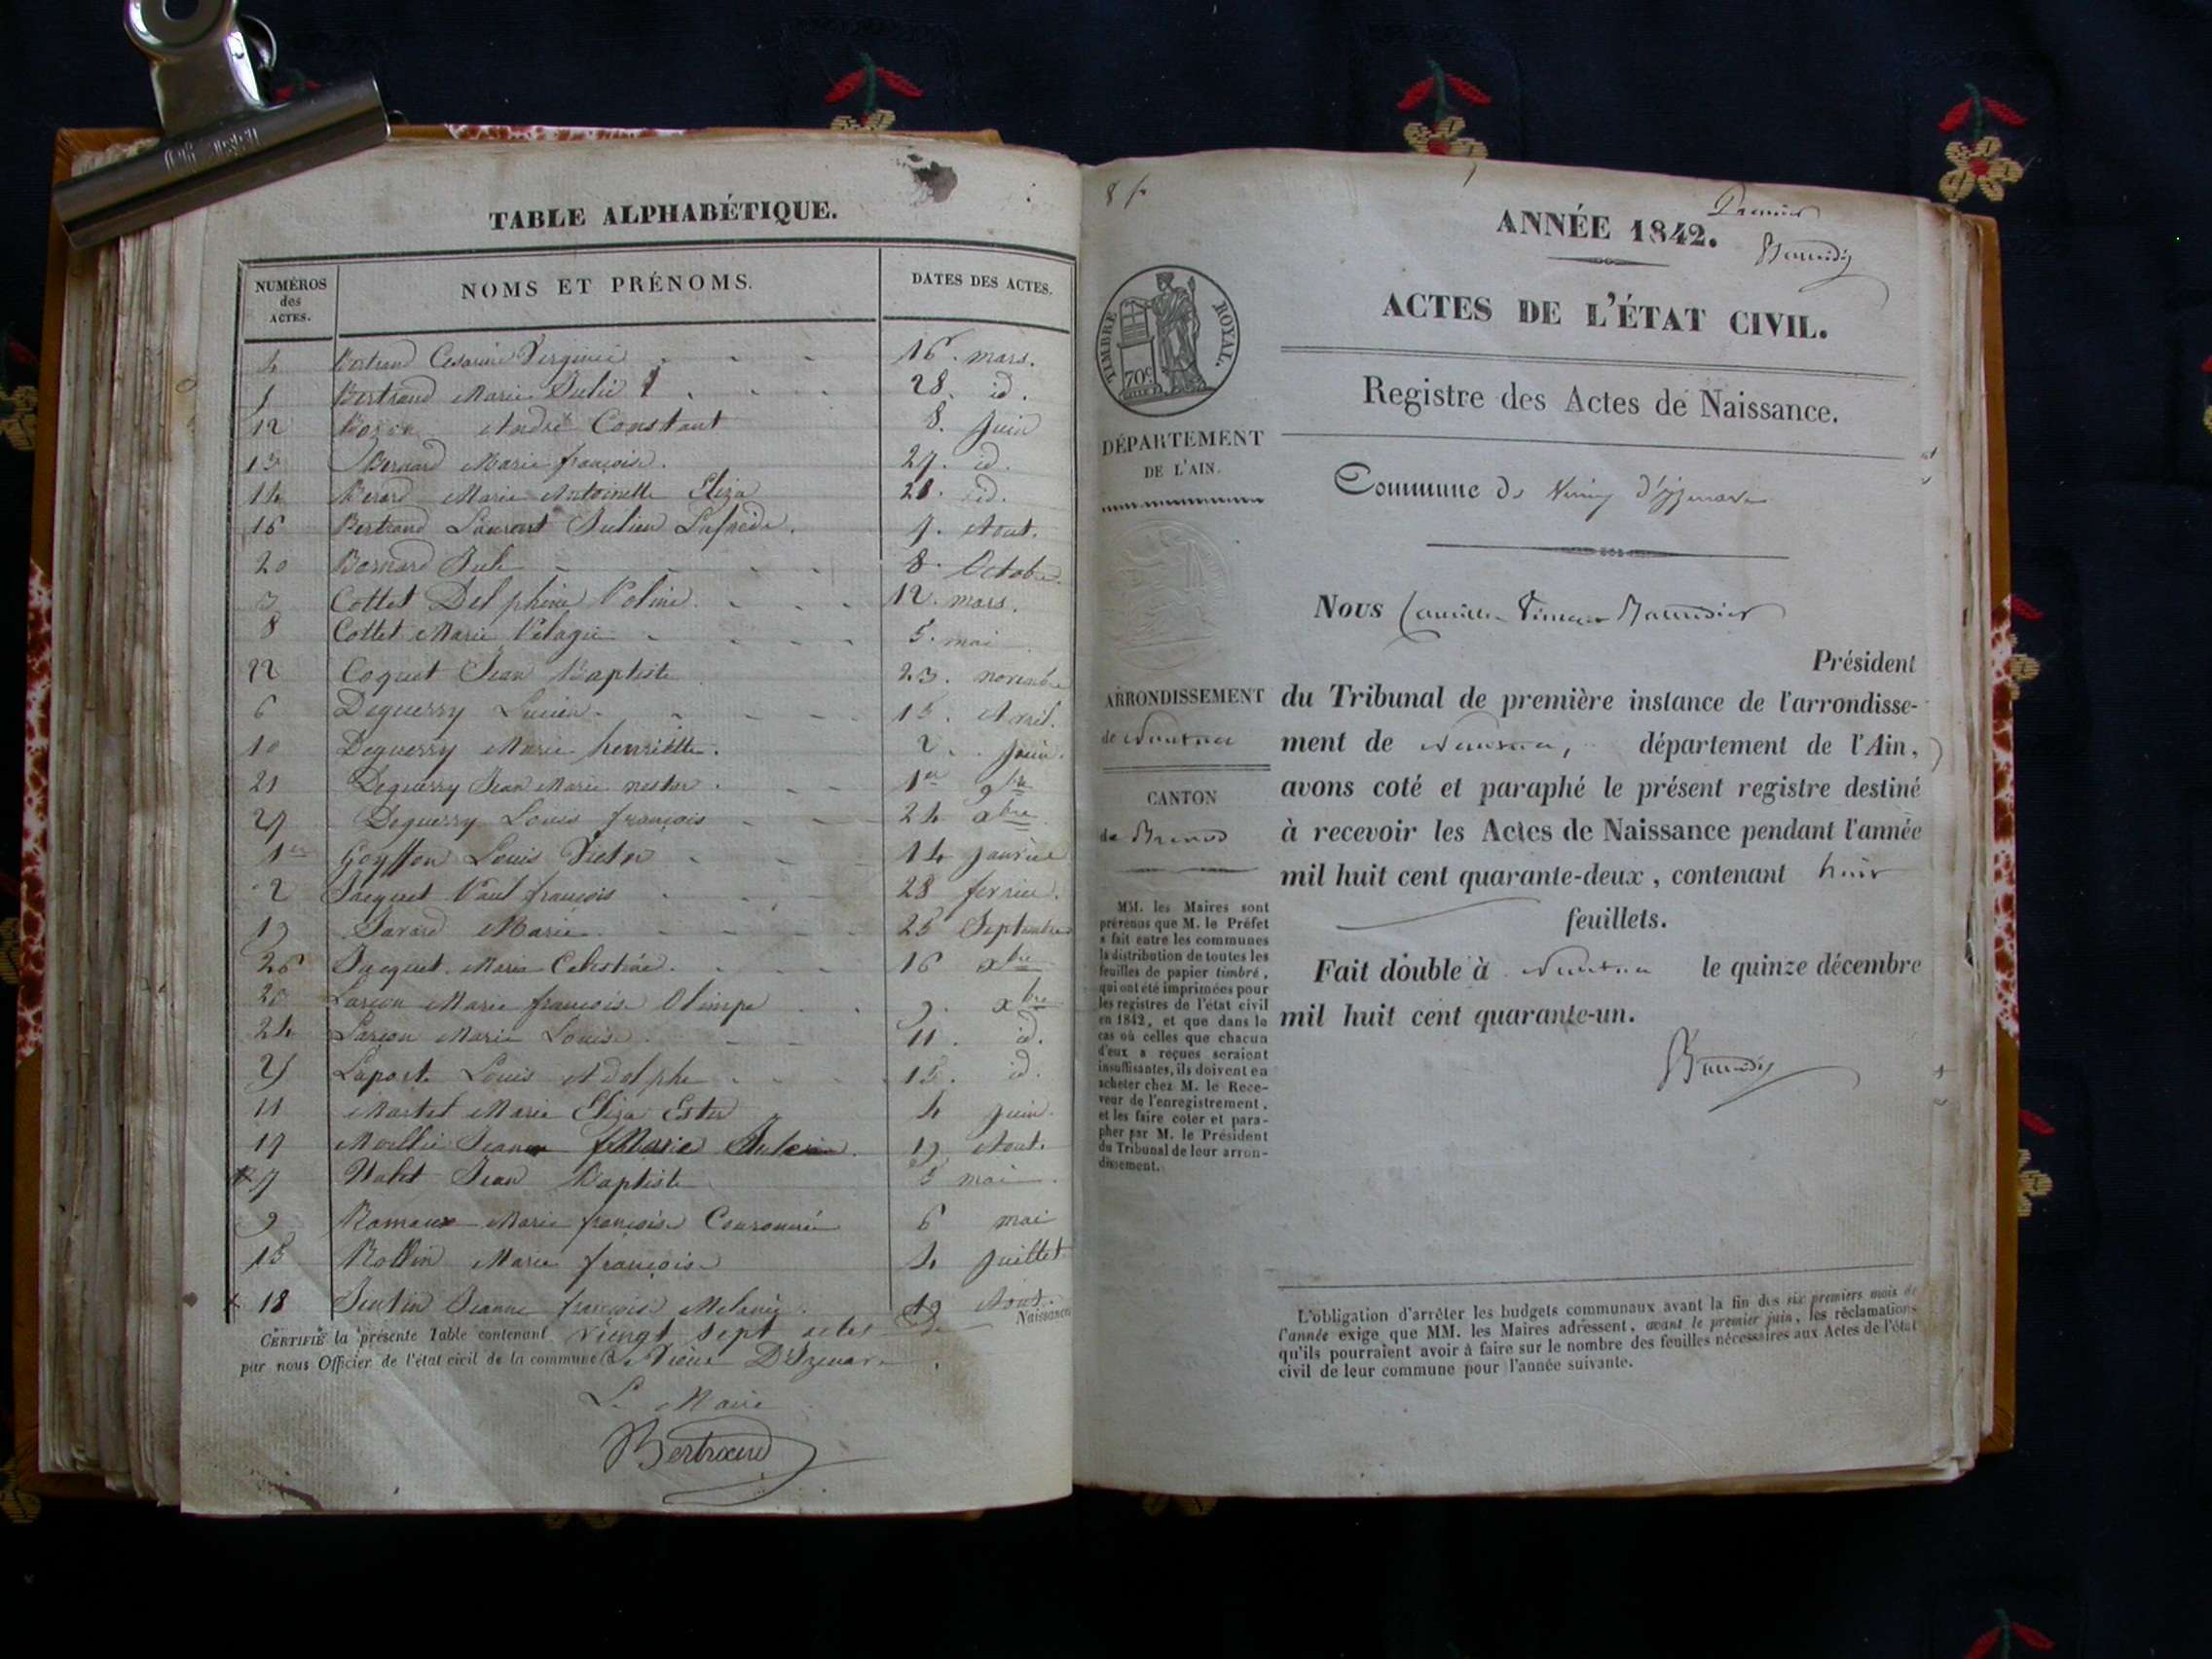 TABLE ALPHABÉTIQUE.
NUMÉROS des ACTES.
NOMS ET PRÉNOMS.
DATES DES ACTES.
4 Bertrand Cesarine Virginie 16. mars.
5 Bertrand Marie Julie 28. id.
12 Bozon André Constant 8. Juin
13 Bernard Marie françoise. 27. id.
14 Berard Marie Antoinette Eliza 28. id.
16 Bertrand Laurent Julien 7. Aout.
20 Bernard Jule 8. Octobre
3 Cottet Delphine Poline. 12. mars.
8 Cottet Marie Pélagie 5. mai
22 Coquet Jean Baptiste 23. novembre
6 Deguerry Lucien. 15. Avril.
10 Deguerry Marie henriette. 2. Juin.
21 Deguerry Jean Marie nestor. 1er 9bre
27 Deguerry Louis françois 24 xbre
1er Goyffon Louis Victor 14 Janvier
2 Jacquet Paul françois 28 fevrier.
19 Savard Marie 25 Septembre
26 Jacquet. Marie Celestine. 16 xbre
23 Larçon Marie françoise Olimpe 9. xbre
24 Larçon Marie Louise 11. id.
25 Laporte Louis Adolphe 15. id.
11 Martet Marie Eliza Ester 4 Juin.
17 Jeanne Marie 19 Aout.
7 Nalet Jean Baptiste 5 mai.
9 Ramaux Marie françoise Couronné 6 mai
15 Rollin Marie françoise 4 Juillet
18 Jeanne françoise Melanie. 19 Aout.
CERTIFIÉ la présente Table contenant viengt sept actes de Naissance
par nous Officier de l'état civil de la commune de Vieux D'Izenave.
Le Maire
Bertrand
8 f.
Premier
ANNÉE 1842.
ACTES DE L'ÉTAT CIVIL.
TIMBRE ROYAL.
70c
Registre des Actes de Naissance.
DÉPARTEMENT
DE L'AIN.
Commune de d'Izenave
Nous Camille
Président
ARRONDISSEMENT
de Nantua
du Tribunal de première instance de l'arrondisse-
ment de Nantua, département de l'Ain,
avons coté et paraphé le présent registre destiné
à recevoir les Actes de Naissance pendant l'année
mil huit cent quarante-deux, contenant huit
feuillets.
Fait double à Nantua le quinze décembre
mil huit cent quarante-un.
CANTON
de Brenod
MM. les Maires sont
prévenus que M. le Préfet
a fait entre les communes
la distribution de toutes les
feuilles de papier timbré,
qui ont été imprimées pour
les registres de l'état civil
en 1842, et que dans le
cas où celles que chacun
d'eux a reçues seraient
insuffisantes, ils doivent en
acheter chez M. le Rece-
veur de l'enregistrement,
et les faire coter et para-
pher par M. le Président
du Tribunal de leur arron-
dissement.
L'obligation d'arrêter les budgets communaux avant la fin des six premiers mois de
l'année exige que MM. les Maires adressent, avant le premier juin, les réclamations
qu'ils pourraient avoir à faire sur le nombre des feuilles nécessaires aux Actes de l'état
civil de leur commune pour l'année suivante.